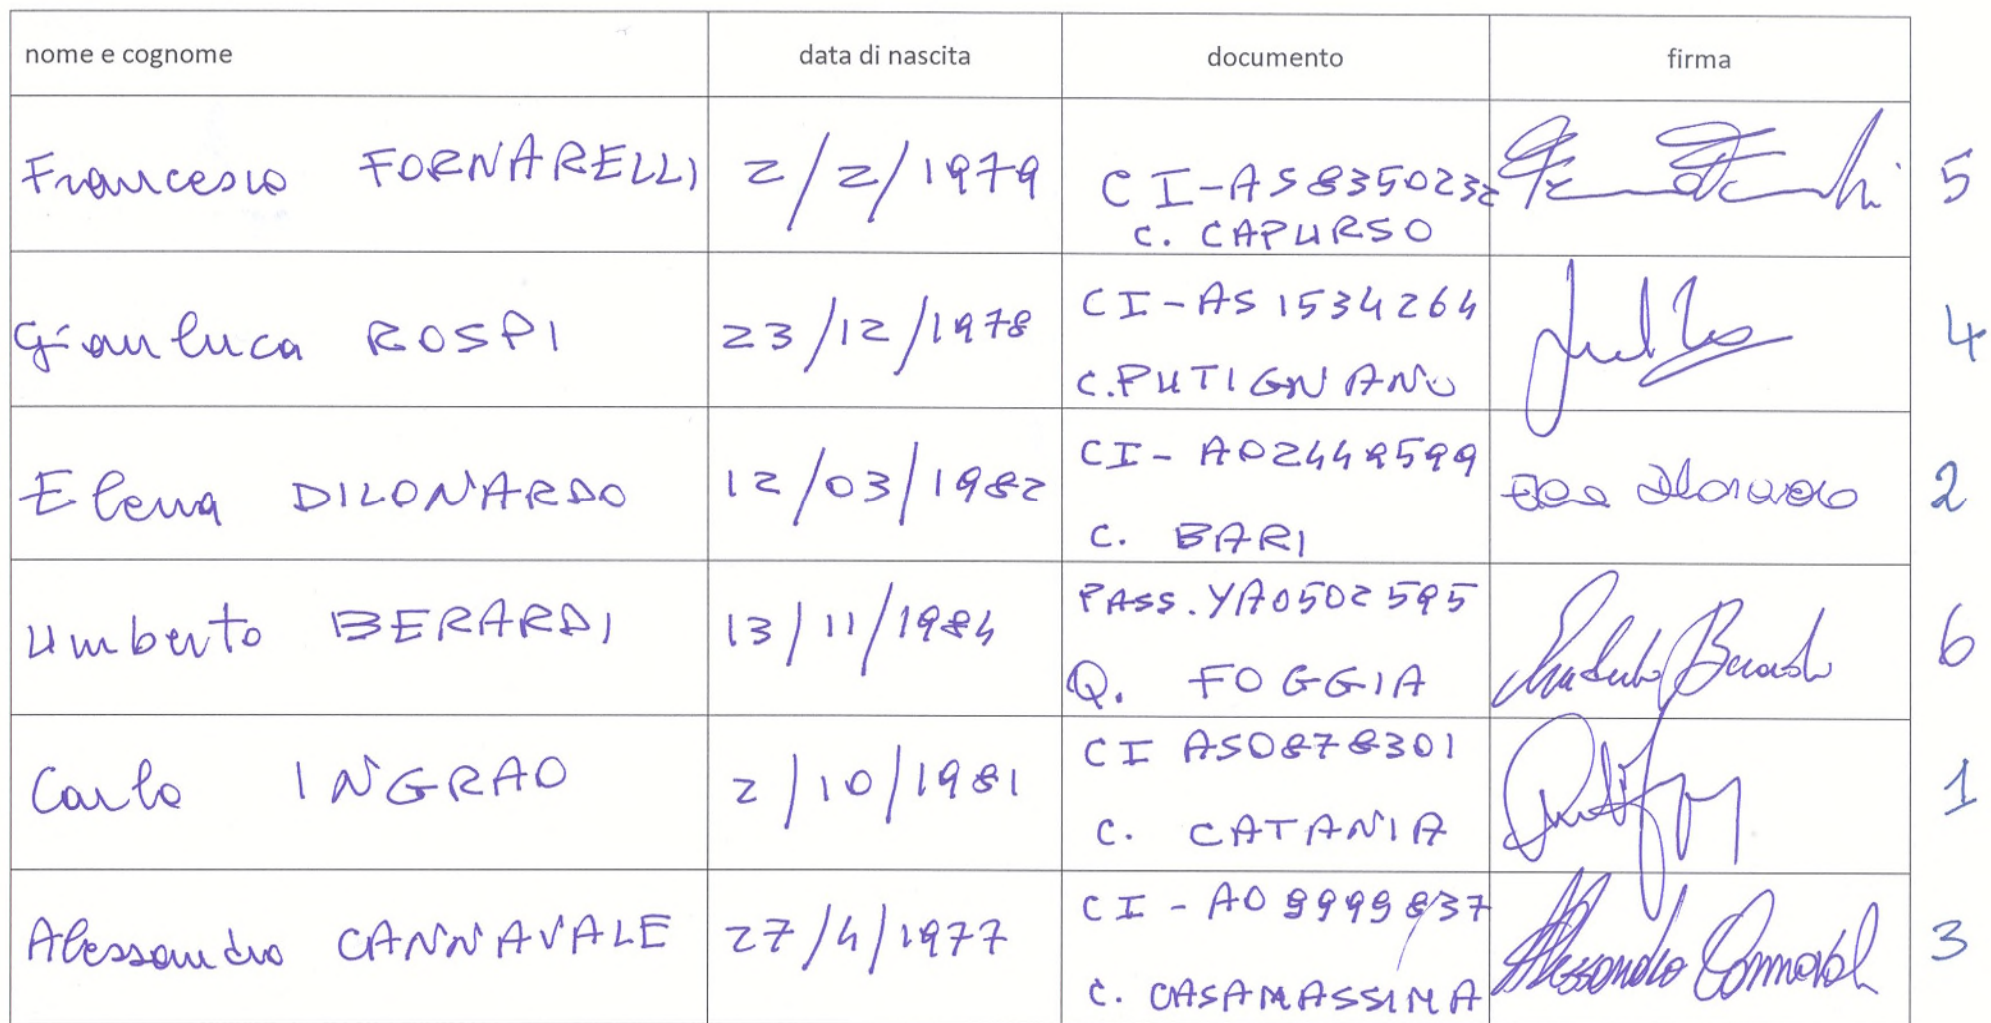 nome e cognome data di nascita documento firma
Francesco FORNARELLI 2/2/1979 CI-AS8350232 5
C. CAPURSO
Gianluca ROSPI 23/12/1978 CI-AS1534264 4
C. PUTIGNANO
Elena DILONARDO 12/03/1982 CI-AO2449599 2
C. BARI
Umberto BERARDI 13/11/1984 PASS. YA0502595 Umberto Berardi 6
Q. FOGGIA
Carlo INGRAO 2/10/1981 CI AS0878301 1
C. CATANIA
Alessandro CANNAVALE 27/4/1977 CI-AO 3
C. CASAMASSIMA Alessandro Cannavale